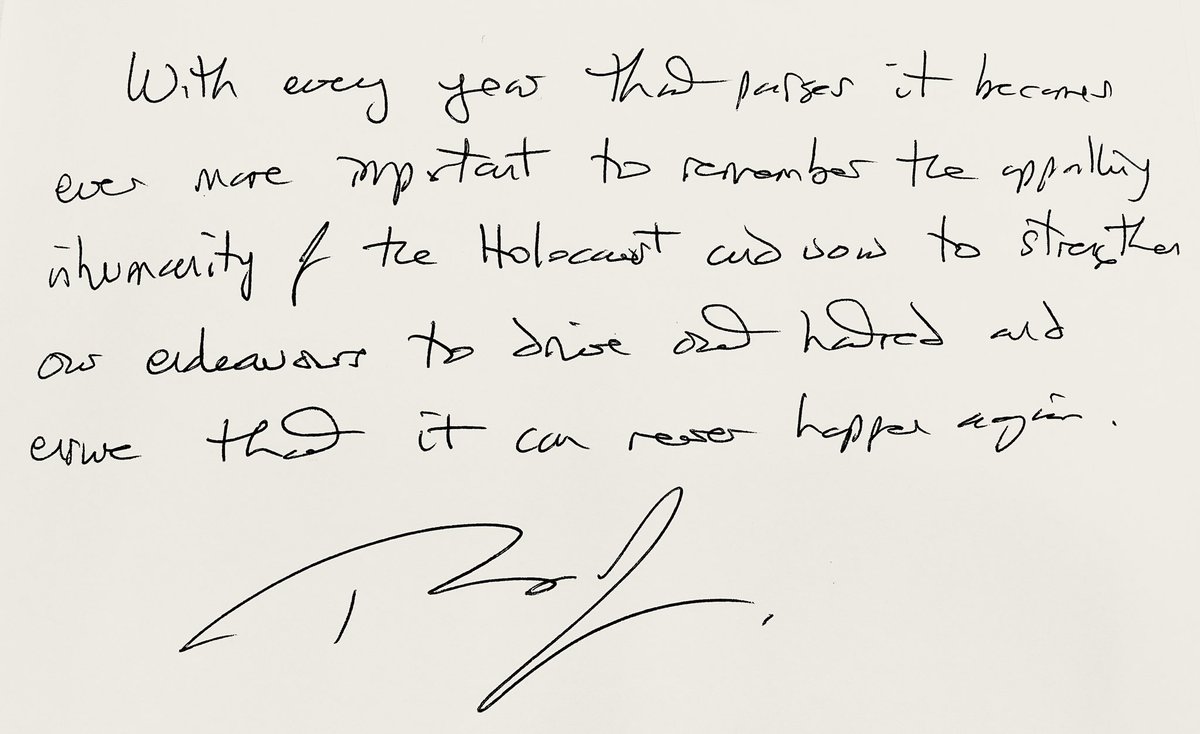 With every year that passes it becomes
ever more important to remember the appalling
inhumanity of the Holocaust and vow to strengthen
our endeavours to drive out hatred and
ensure that it can never happen again.